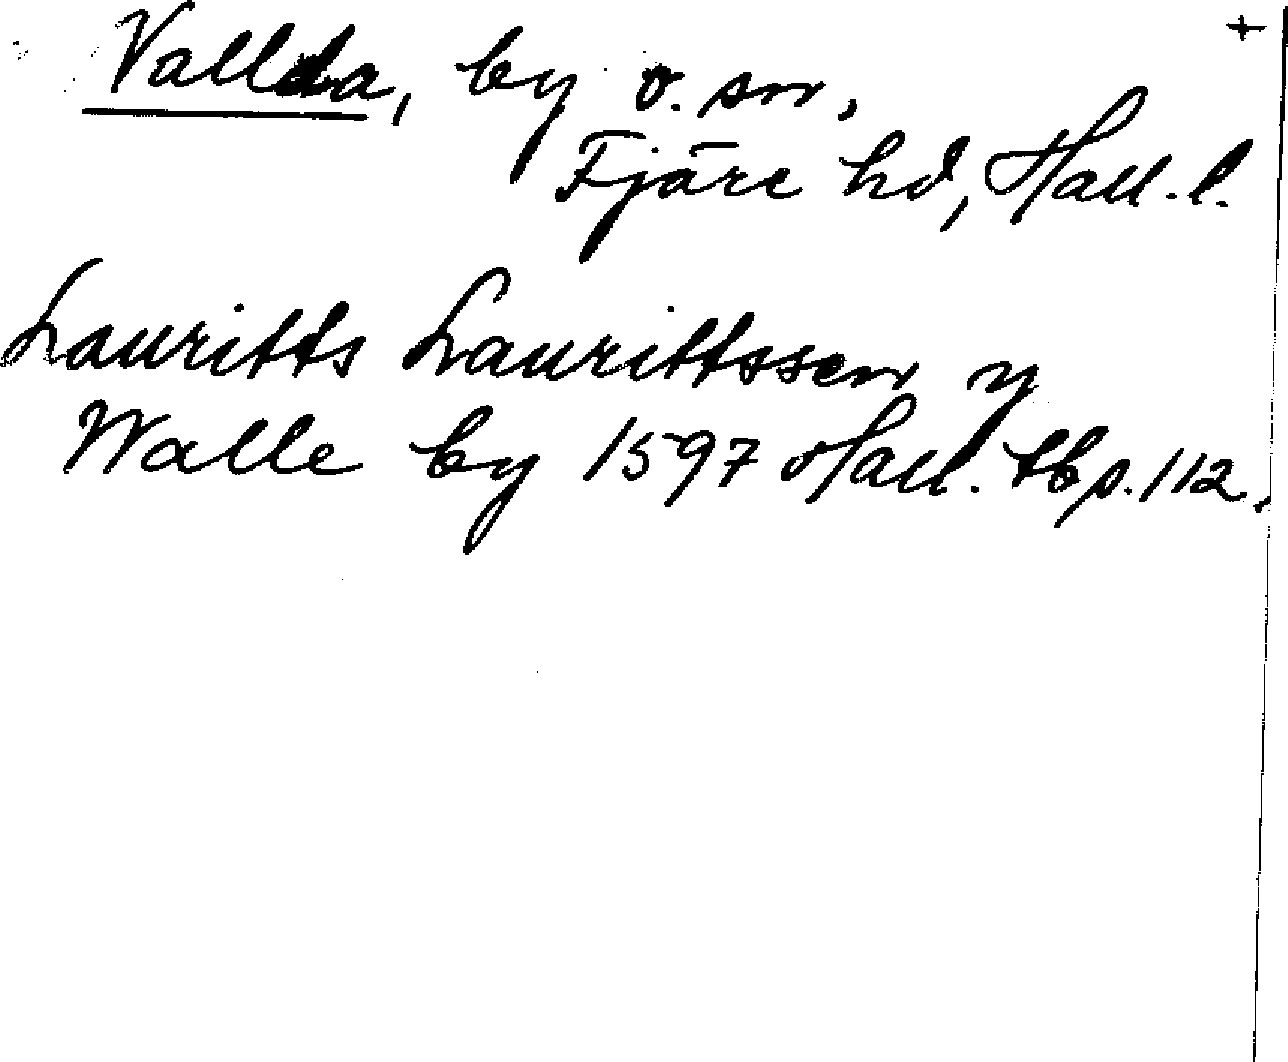 +
Vallda, by o. sn,
Fjäre hd, Hall. l.
Lauritts Laurittssen y
Walle by 1597 Hall. tb p. 112.